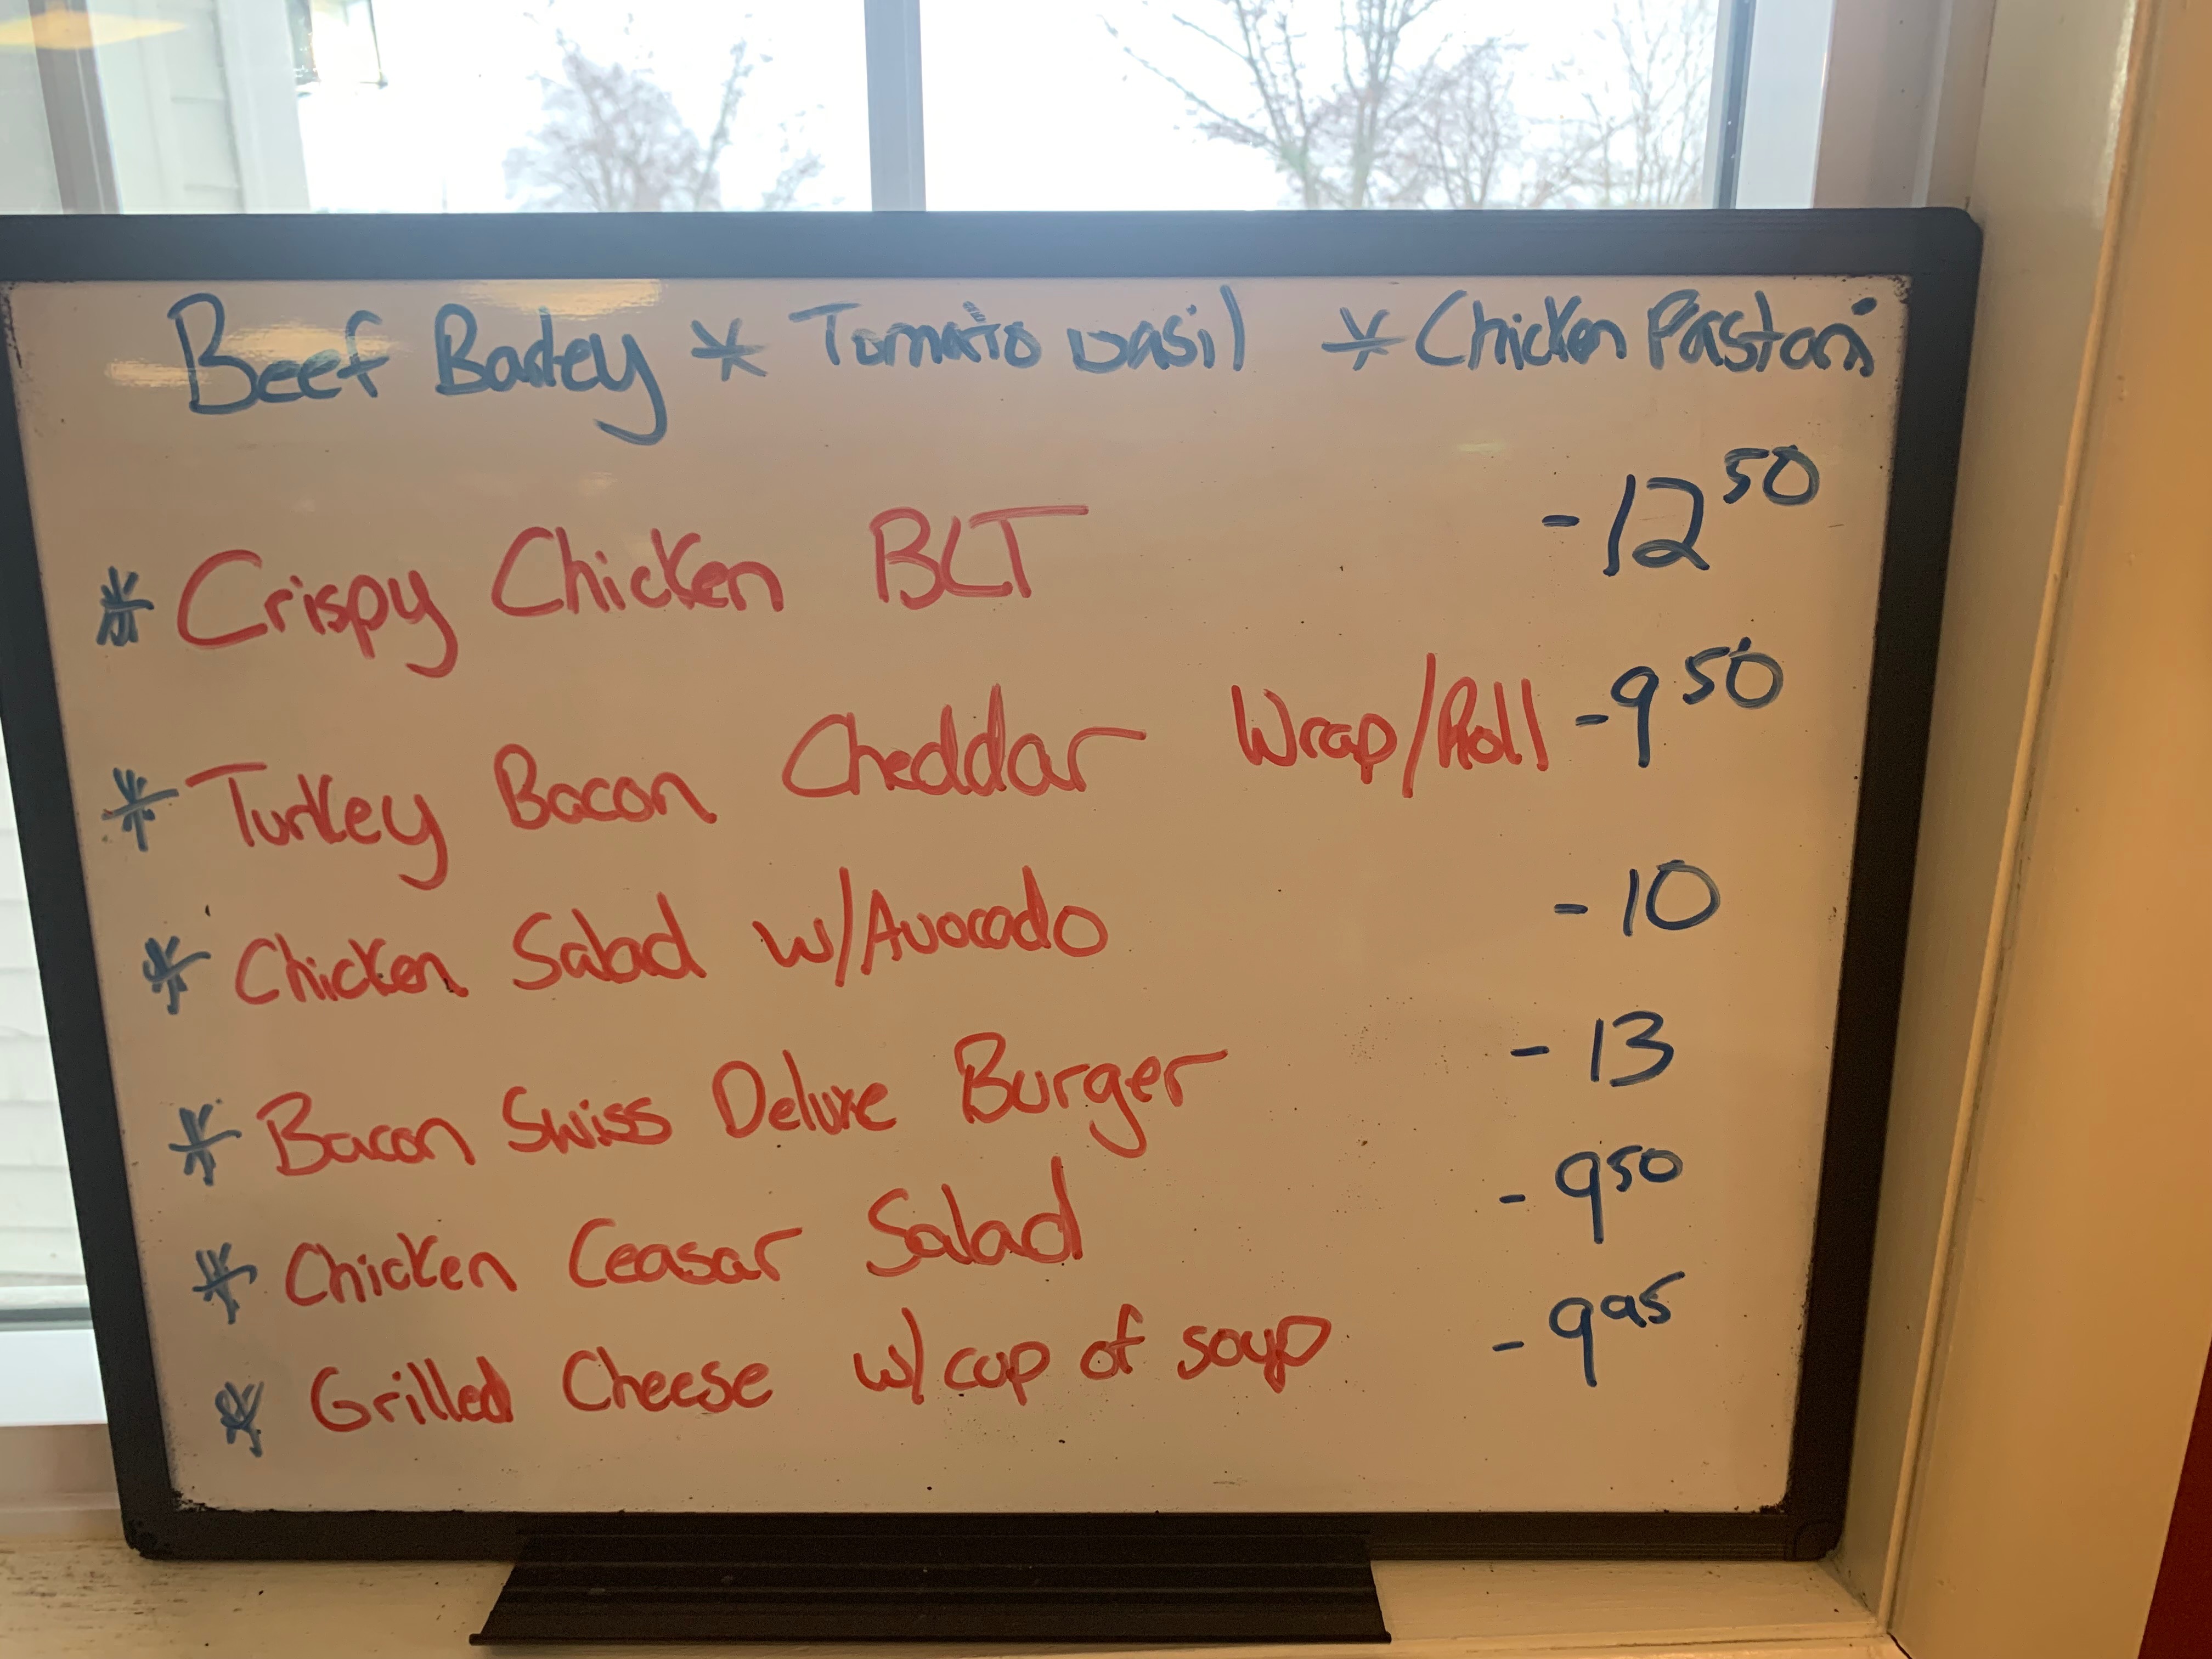 Beef Barley * Tomato basil * Chicken Pastani
* Crispy Chicken BLT - 12 50
* Turkey Bacon Cheddar Wrap/Roll - 9 50
* Chicken Salad w/Avocado - 10
* Bacon Swiss Deluxe Burger - 13
* Chicken Ceasar Salad - 9 50
* Grilled Cheese w/ cup of soup - 9 95